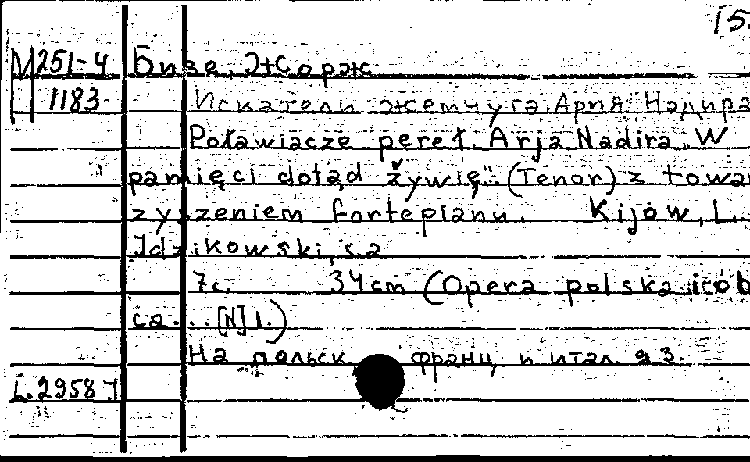 15.
М251-4 Бизе, Жорж
1183. Искатели жемчуга. Ария Надира
Poławiacze pereł. Arja Nadira „W
pamięci dotąd żywię". (Tenor) z towar
zyszeniem fortepianu. Kijów, L.
Idzikowski, s.a
7с. 34 cm (Opera polska i ob
ca... [N] 1.)
На польск. франц и итал яз.
L. 2958 I